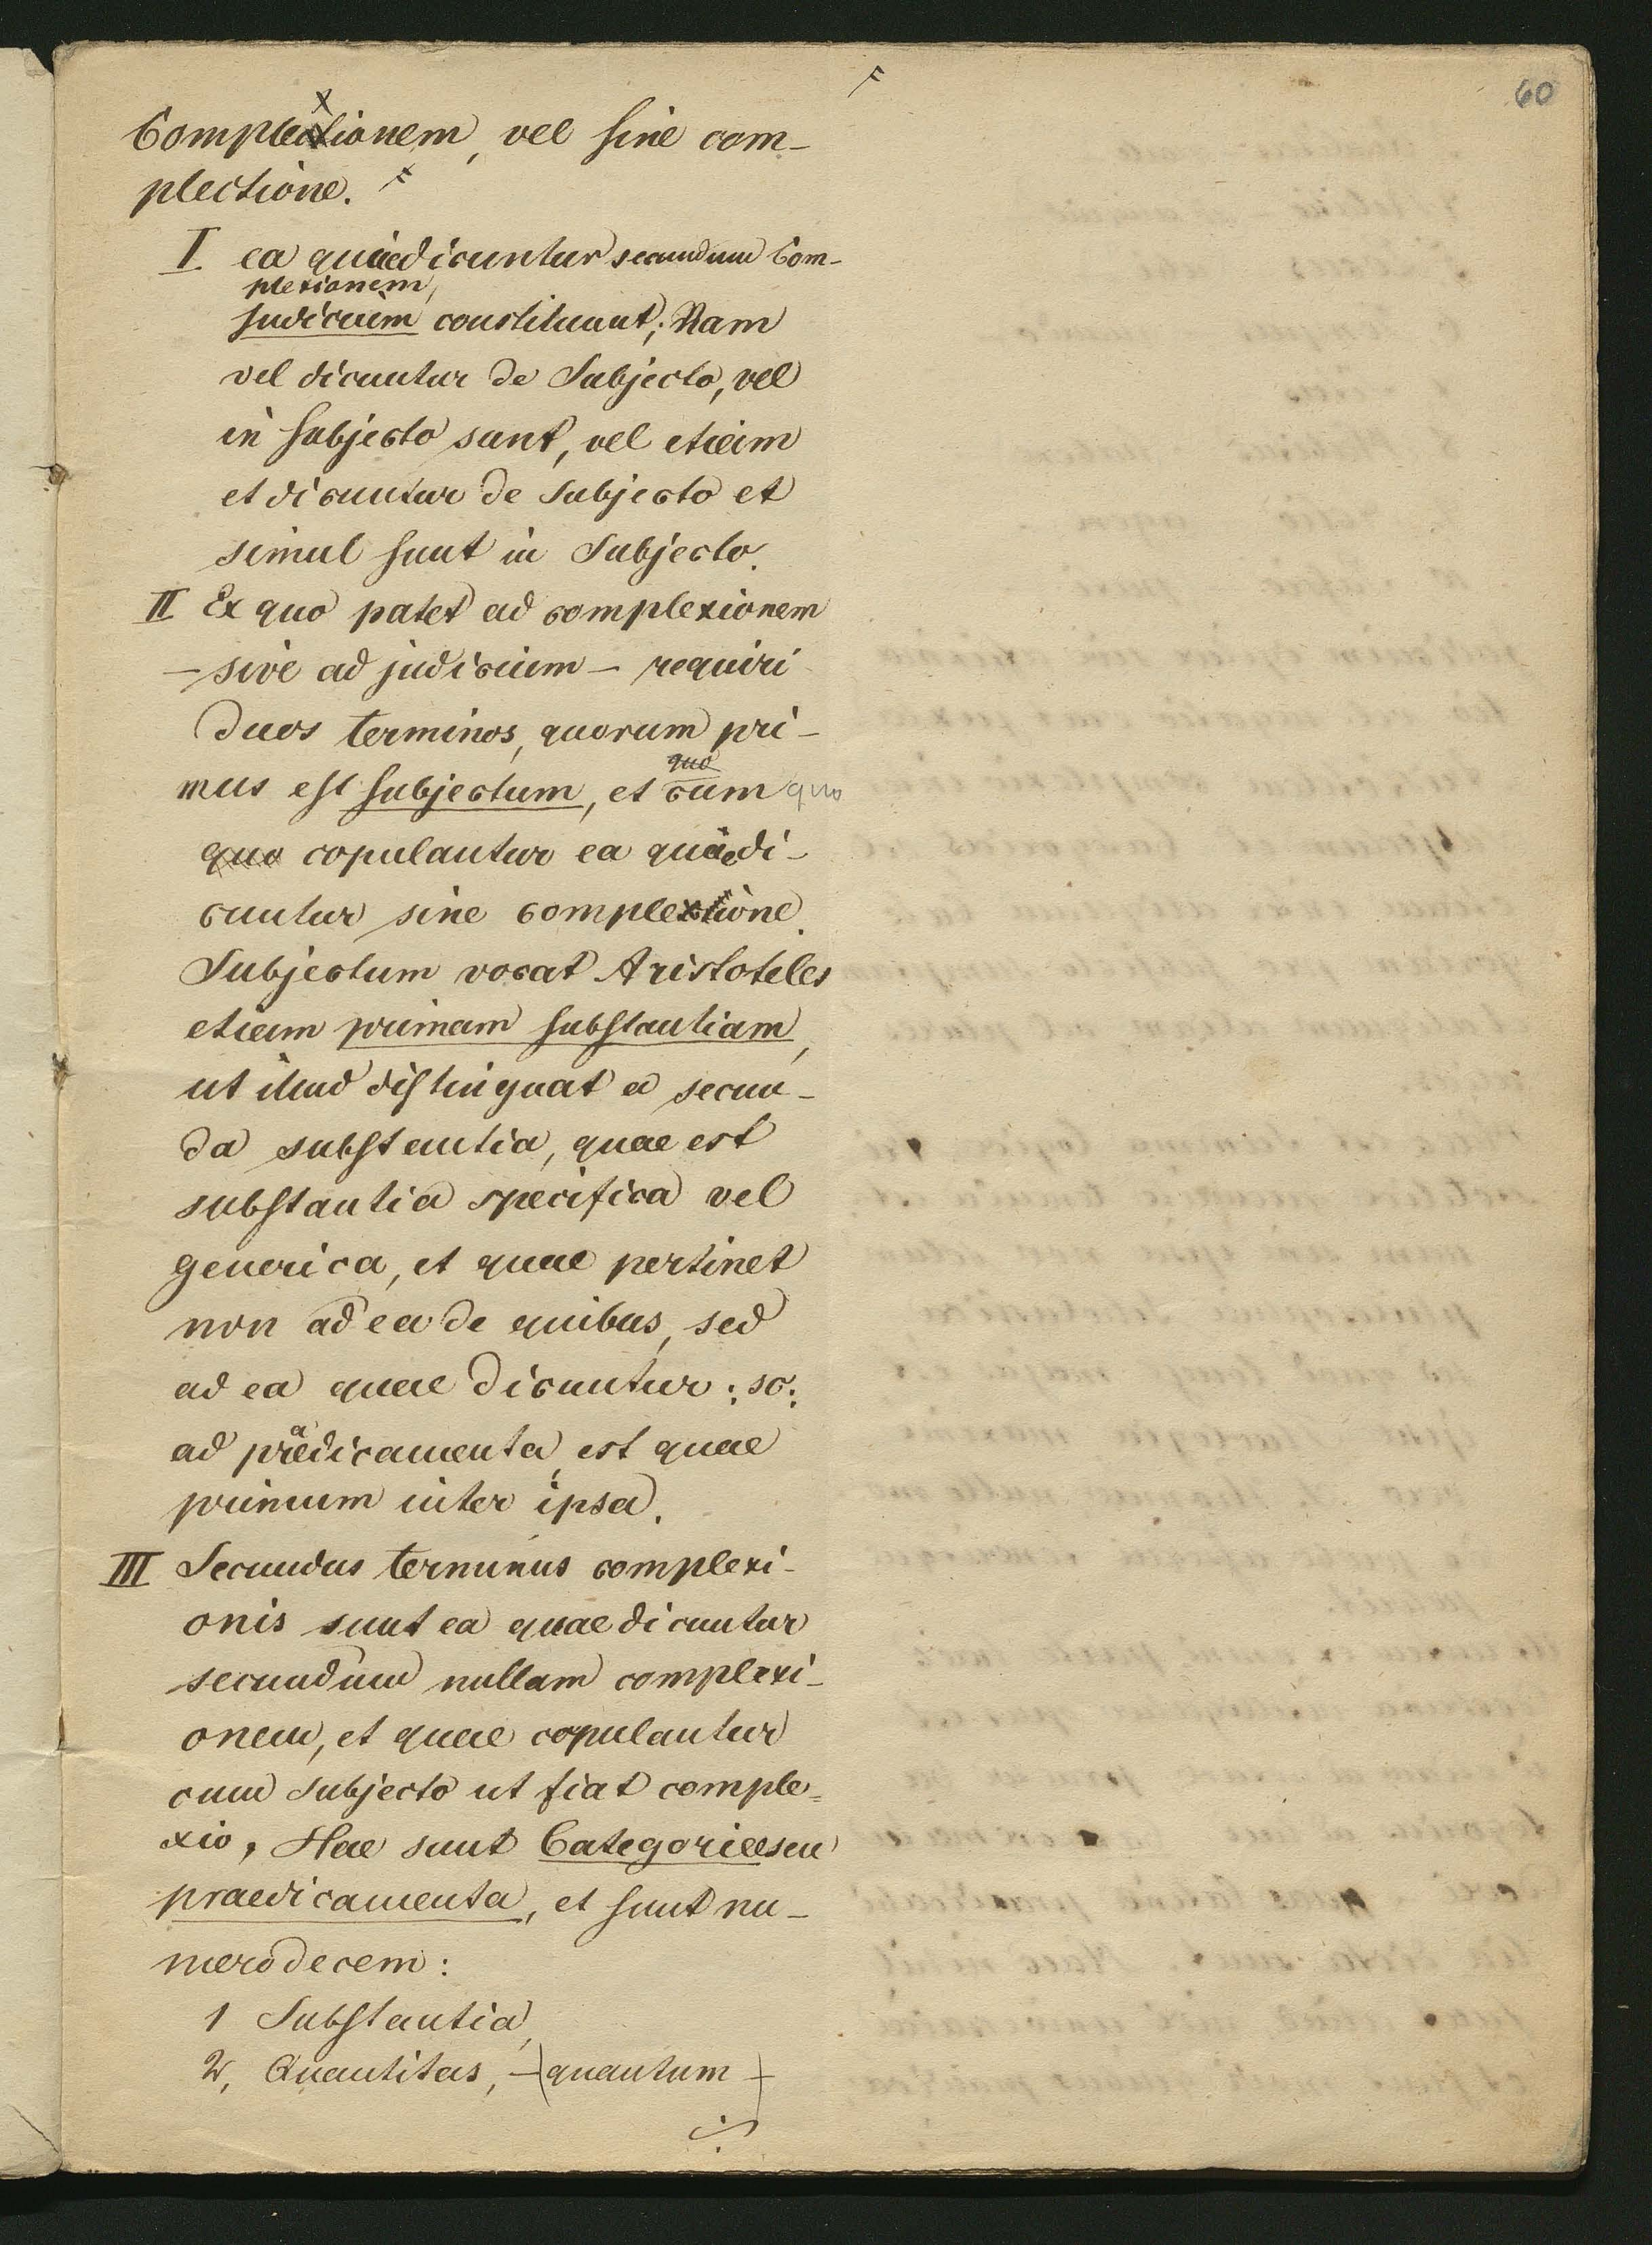 60
Complexionem, vel sine com-
plectione.
I ea quae dicuntur secundum Com-
plexionem,
judicium constituunt; Nam
vel dicuntur de Subjecto, vel
in subjecto sunt, vel etiam
et dicuntur de subjecto et
simul sunt in Subjecto.
II Ex quo patet ad complexionem
- sive ad judicium - requiri
duos terminos, quorum pri-
mus est subjectum, et cum quo
quo copulantur ea quae di-
cuntur sine complexione.
Subjectum vocat Aristoteles
etiam primam substantiam,
ut illud distinguat a secun-
da substantia, quae est
substantia specifica vel
generica, et quae pertinet
non ad ea de quibus, sed
ad ea quae dicuntur: sc:
ad praedicamenta, est quae
primum inter ipsa.
III Secundus terminus complexi-
onis sunt ea quae dicuntur
secundum nullam complexi-
onem, et quae copulantur
cum subjecto ut fiat comple=
xio, Hae sunt Categoriae seu
praedicamenta, et sunt nu-
mero decem:
1 Substantia,
2, Quantitas, - (quantum)